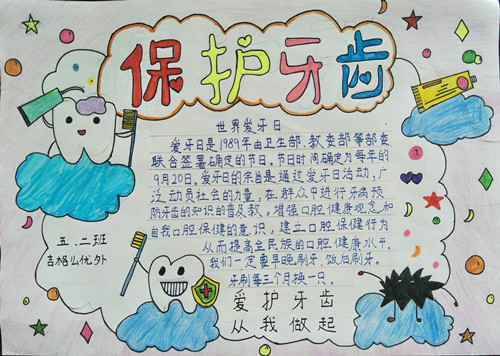 保护牙齿
世界爱牙日
爱牙日是1989年由卫生部、教委部等部委
联合签署确定的节日。节日时间确定为每年的
9月20日。爱牙日的宗旨是通过爱牙日活动,广
泛动员社会的力量,在群众中进行牙病预
防牙齿的知识的普及教,增强口腔健康观念和
自我口腔保健的意识,建立口腔保健行为
从而提高全民族的口腔健康水平。
我们一定要早晚刷牙、饭后刷牙。
牙刷每三个月换一只。
五.二班
吉格么优外
爱护牙齿
从我做起